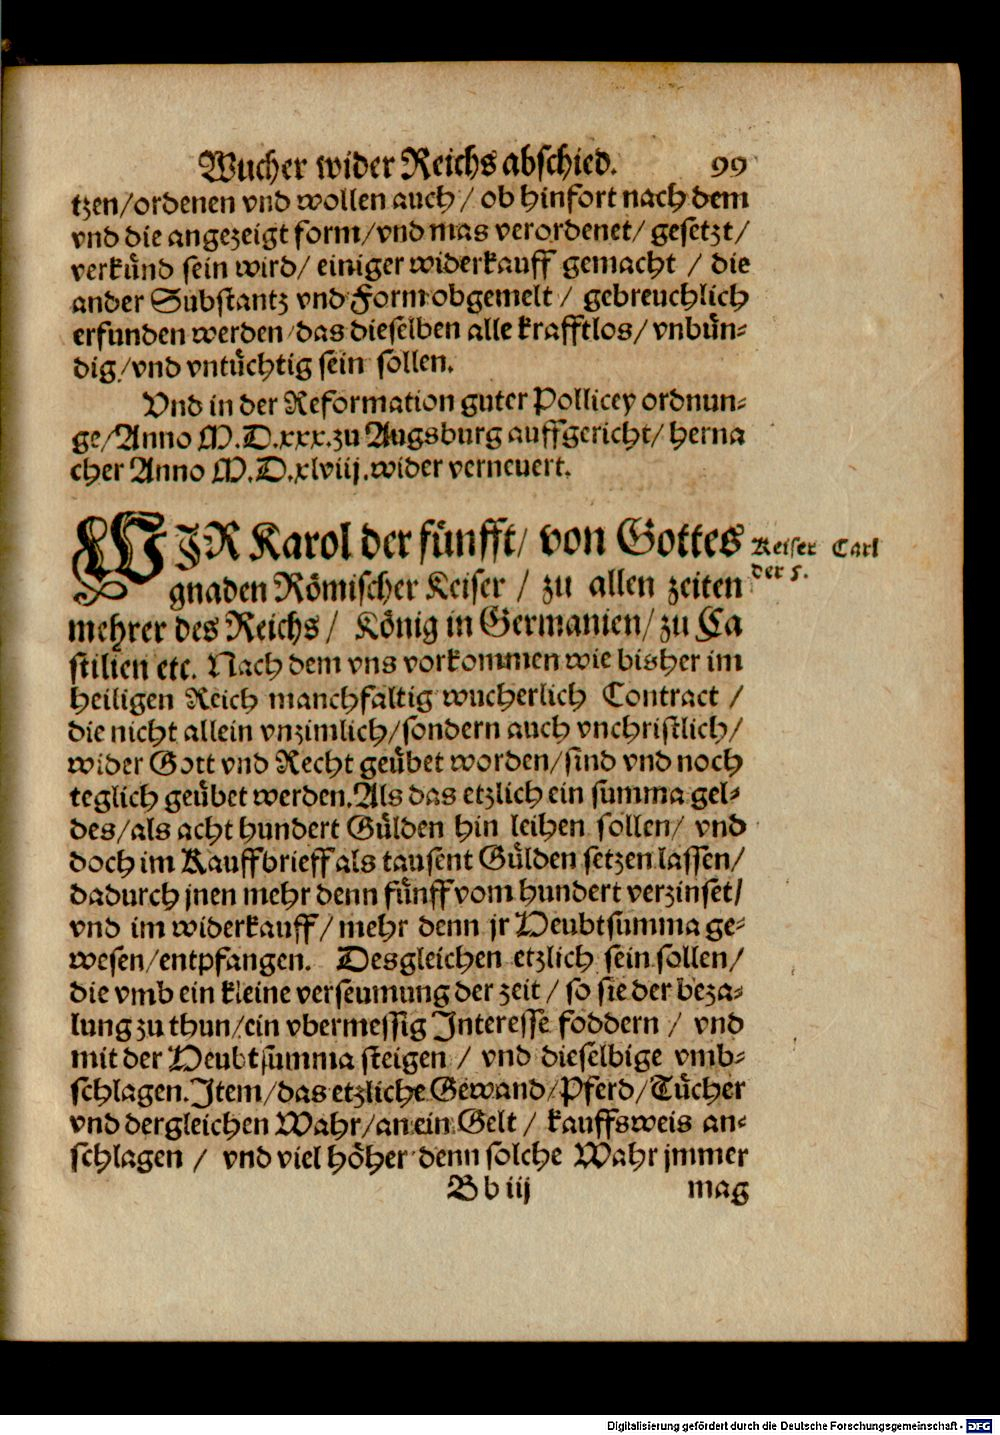 Wucher wider Reichs abschied. 99
tzen/ordenen vnd wollen auch/ ob hinfort nach dem
vnd die angezeigt form/vnd mas verordenet/ gesetzt/
verkünd sein wird/ einiger widerkauff gemacht / die
ander Substantz vnd Form obgemelt / gebreuchlich
erfunden werden das dieselben alle krafftlos/ vnbün-
dig/vnd vntüchtig sein sollen.
Vnd in der Reformation guter Pollicey ordnun-
ge/Anno M.D.xxx.zu Augsburg auffgericht/ herna
cher Anno M.D.xlviij.wider verneuert.
WJR Karol der fünfft/ von Gottes
gnaden Römischer Keiser / zu allen zeiten
mehrer des Reichs / König in Germanien/ zu Ca
stilien etc. Nach dem vns vorkommen wie bisher im
heiligen Reich manchfaltig wucherlich Contract /
die nicht allein vnzimlich/sondern auch vnchristlich/
wider Gott vnd Recht geübet worden/sind vnd noch
teglich geübet werden.Als das etzlich ein summa gel-
des/als acht hundert Gülden hin leihen sollen/ vnd
doch im Kauffbrieff als tausent Gülden setzen lassen/
dadurch jnen mehr denn fünff vom hundert verzinset/
vnd im widerkauff/ mehr denn jr Heubtsumma ge-
wesen/entpfangen. Desgleichen etzlich sein sollen/
die vmb ein kleine verseumung der zeit / so sie der beza-
lung zu thun/ein vbermessig Jnteresse foddern / vnd
mit der Heubtsumma steigen / vnd dieselbige vmb-
schlagen.Jtem/das etzliche Gewand/Pferd/Tücher
vnd dergleichen Wahr/an ein Gelt / kauffsweis an-
schlagen / vnd viel höher denn solche Wahr jmmer
B b iij mag
Keiser Carl
der 5.
Digitalisierung gefördert durch die Deutsche Forschungsgemeinschaft - DFG